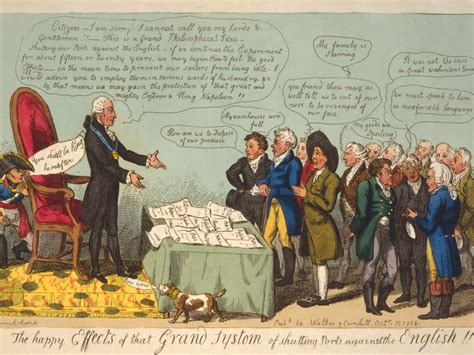 Citizens – I am sorry I cannot call you my Lords &
Gentlemen!! – This is a Grand Philosophical Idea –
shutting our Port against the English – if we continue the Experiment
for about fifteen or twenty years, we may begin to feel the good
Effects – in the mean time to prevent our sailors from being idle – I
would advise you to employ them in various works of husbandry &c
by that means we may gain the protection of that great and
mighty Emperor Napoleon!!
You shall be King
hereafter
How are we to Dispose
of our produce
My warehouses are
full
My family is
Starving
you friend thou may as
well tell us to cut of our
nose to be revenged of our
face
My goods are
Spoiling
It was not the case
in Great
We must speak to him
in more forcible language
Pubd by Walker 7 Cornhill Octr 15 1808
The happy Effects of that Grand System of shutting Ports against the English